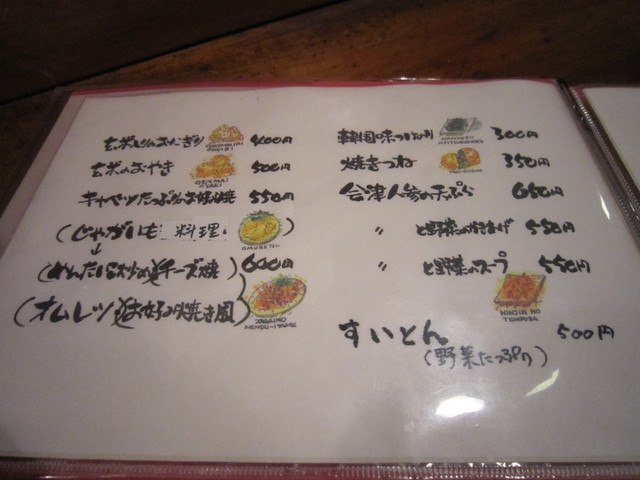 玄米のおにぎり 400円
玄米のおやき 500円
GENMAI YAKI
キャベツたっぷりのお好み焼 550円
(じゃがいも 料理)
OMURETSU
↓
チーズ焼) 600円
(オムレツ お好み焼き風)
JAGAIMO MENTSU-ITAME
韓国味つけのり 300円
焼きつね 350円
会津人参の天ぷら 650円
〃 と野菜のかきあげ 550円
〃 と野菜のスープ 550円
NINJIN NO TEMPURA
すいとん 500円
(野菜たっぷり)